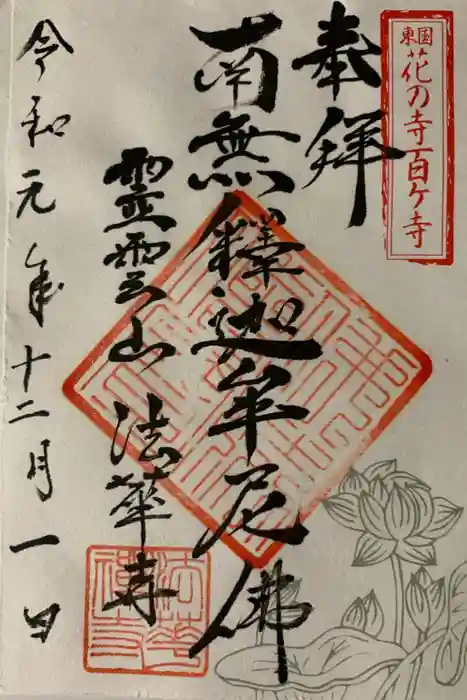 東国
花の寺百ケ寺
奉拝
南無釋迦牟尼佛
霊雲山 法華寺
令和元年十二月一日